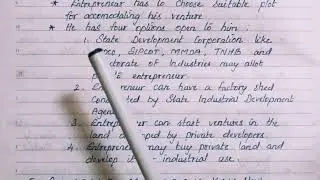 * Entrepreneur has to choose suitable plot
for accomodating his venture
* He has four options open to him:
1. State Development Corporation like
SIPCOT, MMDA, TNHB and
of Industries may allot
entrepreneur
2. can have a factory shed
by State Industrial Development
3. Entrepreneur can start ventures in the
land by private developers
4. Entrepreneur may buy private land and
develop industrial use.